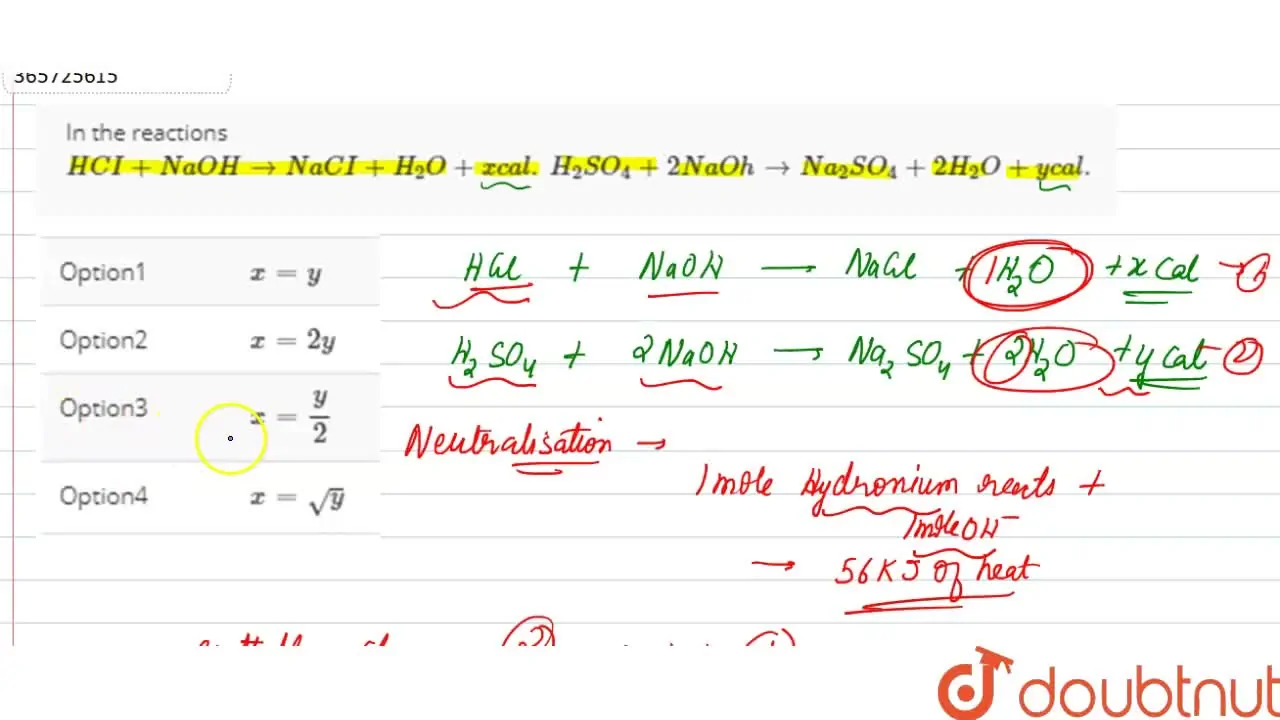 365725615
In the reactions
HCI + NaOH → NaCI + H₂O + xcal. H₂SO₄ + 2NaOh → Na₂SO₄ + 2H₂O + ycal.
Option1 x = y
Option2 x = 2y
Option3 x = y/2
Option4 x = √y
HCl + NaOH — NaCl + 1H₂O + x Cal → 1
H₂SO₄ + 2NaOH — Na₂SO₄ + 2H₂O + y Cal → 2
Neutralisation →
1mole Hydronium reacts +
1mole OH⁻
→ 56KJ of heat
doubtnut